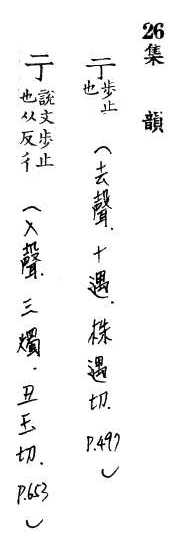 26 集韻
亍 步止也 (去聲.十遇.株遇切. P.497)
亍 說文步止也从反彳 (入聲.三燭.丑玉切. P.653)